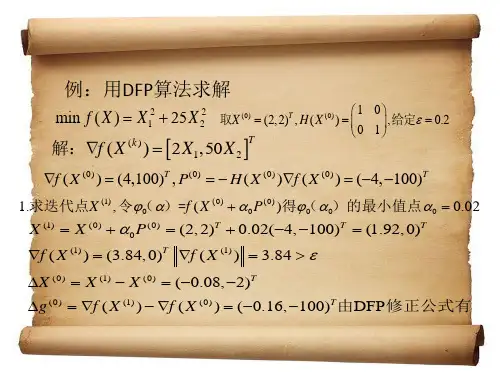 例：用DFP算法求解
min f(X) = X₁² + 25X₂² 取X⁽⁰⁾ = (2,2)ᵀ, H(X⁽⁰⁾) = (1 0; 0 1), 给定ε = 0.2
解：∇f(X⁽ᵏ⁾) = [2X₁, 50X₂]ᵀ
∇f(X⁽⁰⁾) = (4,100)ᵀ, P⁽⁰⁾ = −H(X⁽⁰⁾)∇f(X⁽⁰⁾) = (−4, −100)ᵀ
1.求迭代点X⁽¹⁾, 令φ₀（α）=f(X⁽⁰⁾ + α₀P⁽⁰⁾)得φ₀（α₀）的最小值点α₀ = 0.02
X⁽¹⁾ = X⁽⁰⁾ + α₀P⁽⁰⁾ = (2, 2)ᵀ + 0.02(−4, −100)ᵀ = (1.92, 0)ᵀ
∇f(X⁽¹⁾) = (3.84, 0)ᵀ ‖∇f(X⁽¹⁾)‖ = 3.84 > ε
ΔX⁽⁰⁾ = X⁽¹⁾ − X⁽⁰⁾ = (−0.08, −2)ᵀ
Δg⁽⁰⁾ = ∇f(X⁽¹⁾) − ∇f(X⁽⁰⁾) = (−0.16, −100)ᵀ由DFP修正公式有